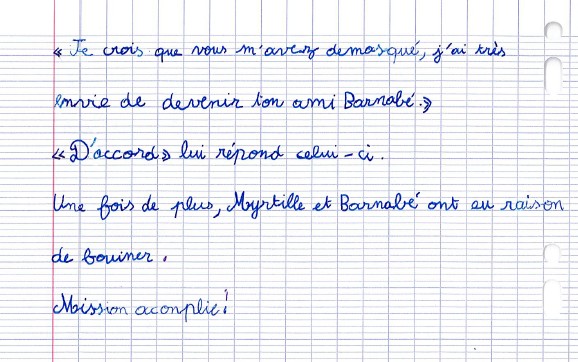 « Je crois que vous m'avez demasqué, j'ai très
envie de devenir ton ami Barnabé.»
«D'accord» lui répond celui-ci.
Une fois de plus, Myrtille et Barnabé ont eu raison
de bouiner.
Mission acomplie!